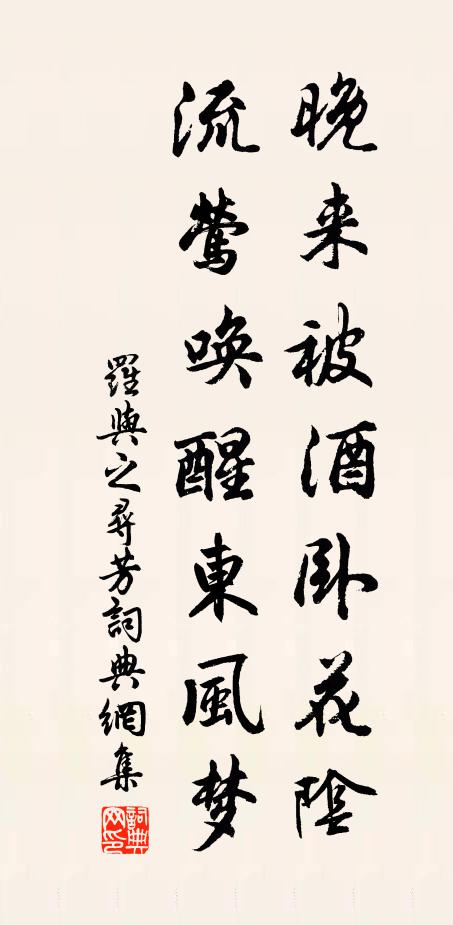 晚来被酒卧花陰
流莺唤醒東風梦
羅與之尋芳詞典網集
詞典
网印